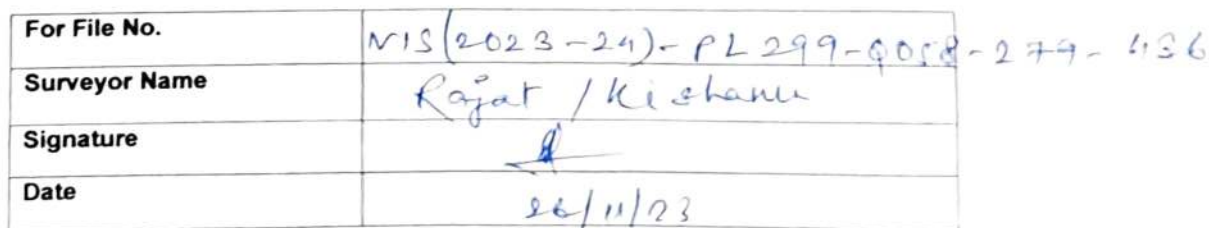 For File No. VIS(2023-24)-PL299-Q058-279-436
Surveyor Name Rajat /
Signature
Date 26/11/23